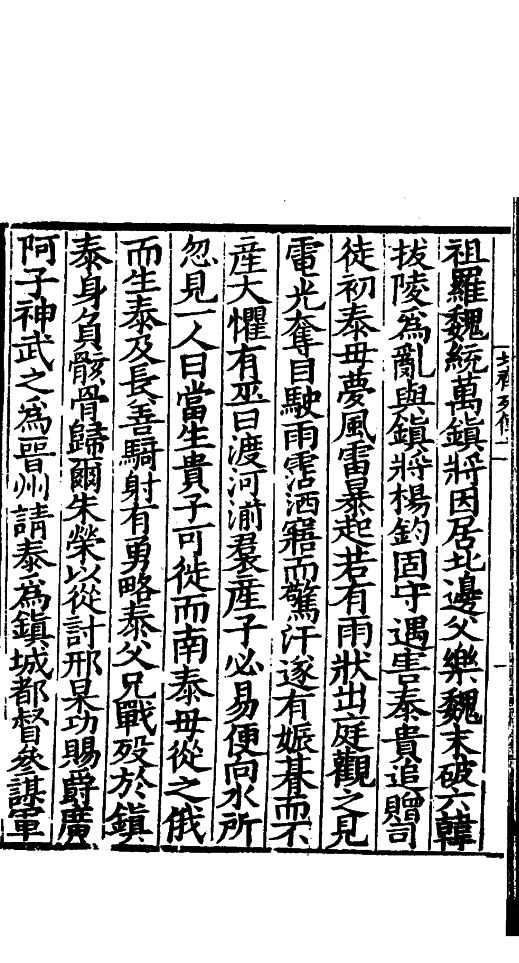 祖羅魏統萬鎮將因居北邊父樂魏末破六韓
拔陵爲亂與鎮將楊鈞固守遇害泰貴追贈司
徒初泰母夢風雷暴起若有雨狀出庭觀之見
電光奪目駛雨霑洒寤而驚汗遂有娠朞而不
産大懼有巫曰渡河湔裠産子必易便向水所
忽見一人曰當生貴子可徙而南泰母從之俄
而生泰及長善騎射有勇略泰父兄戰歿於鎮
泰身負骸骨歸爾朱榮以從討邢杲功賜爵廣
阿子神武之爲晉州請泰爲鎮城都督參謀軍